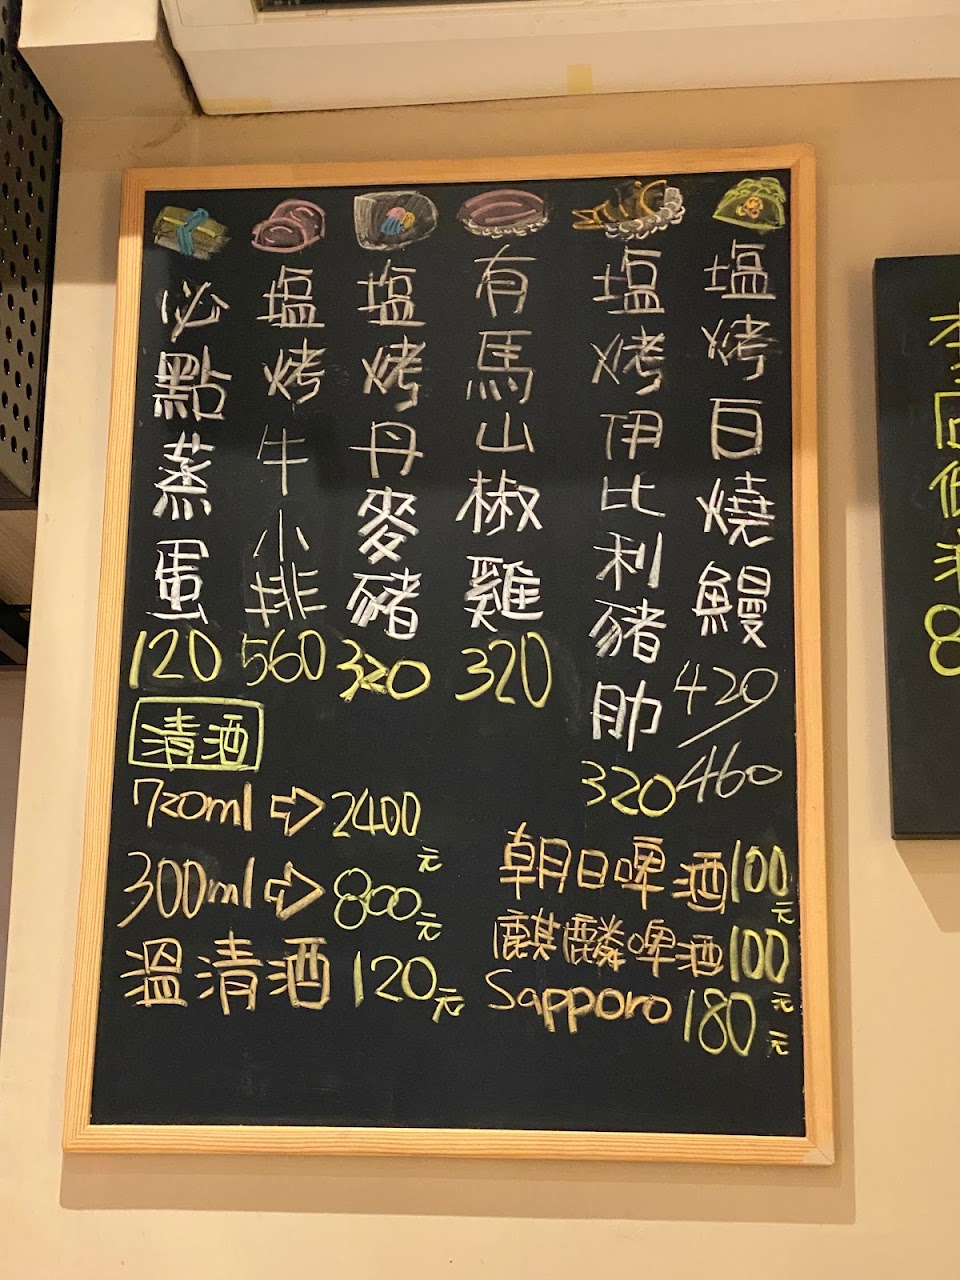 塩烤白燒鰻
420/460
塩烤伊比利豬肋
320
有馬山椒雞
320
塩烤丹麥豬
320
塩烤牛小排
560
必點蒸蛋
120
清酒
720ml⇨2400元
300ml⇨800元
溫清酒 120元
朝日啤酒100元
麒麟啤酒100元
Sapporo 180元